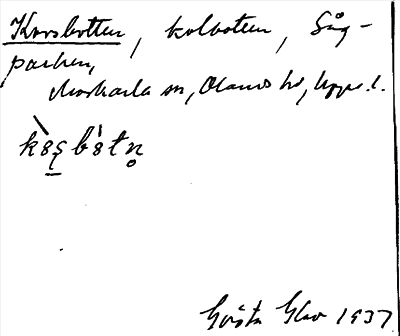 Korsbotten, kolbotten, Såg-
parken,
Morkarla sn, Olands hd, Uppl.
Gösta Glav 1937